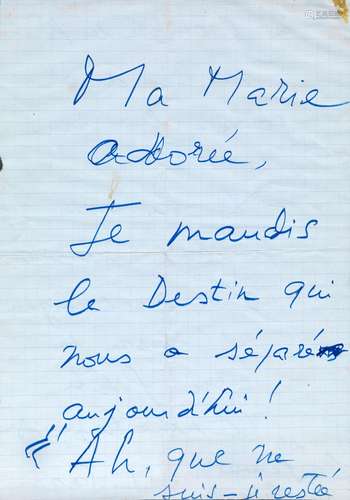 Ma Marie
adorée,
Je maudis
le Destin qui
nous a séparés
aujourd'hui !
" Ah, que ne
suis-je restée